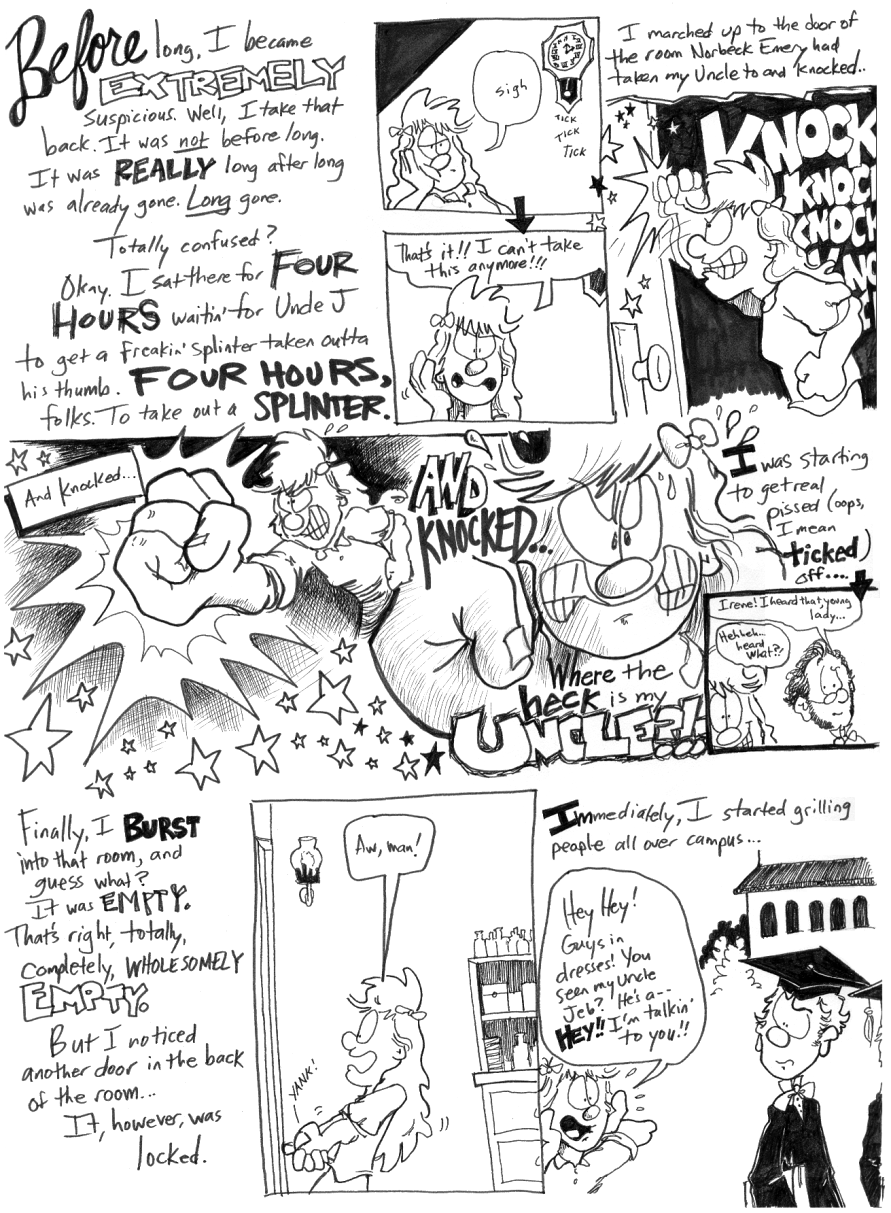 Before long, I became
EXTREMELY
suspicious. Well, I take that
back. It was not before long.
It was REALLY long after long
was already gone. Long gone.
Totally confused?
Okay. I sat there for FOUR
HOURS waitin' for Uncle J
to get a freakin' splinter taken outta
his thumb. FOUR HOURS,
folks. To take out a SPLINTER.
sigh
TICK
TICK
TICK
That's it!! I can't take
this anymore!!!
I marched up to the door of
the room Norbeck Emery had
taken my Uncle to and knocked..
KNOCK
KNOCK
KNOCK
And knocked...
AND
KNOCKED...
Where the
heck is my
UNCLE?!!...
I was starting
to get real
pissed (oops,
I mean
ticked)
off....
Irene! I heard that, young
lady...
Hehheh...
heard
what??
Finally, I BURST
into that room, and
guess what?
It was EMPTY.
That's right, totally,
completely, WHOLESOMELY
EMPTY.
But I noticed
another door in the back
of the room...
It, however, was
locked.
Aw, man!
YANK!
Immediately, I started grilling
people all over campus...
Hey Hey!
Guys in
dresses! You
seen my Uncle
Jeb? He's a--
HEY!! I'm talkin'
to you!!